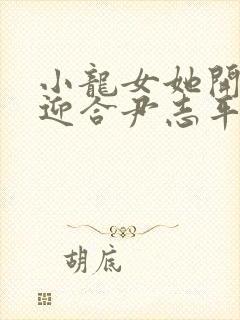 小龍女她開
迎合尹志平
胡底